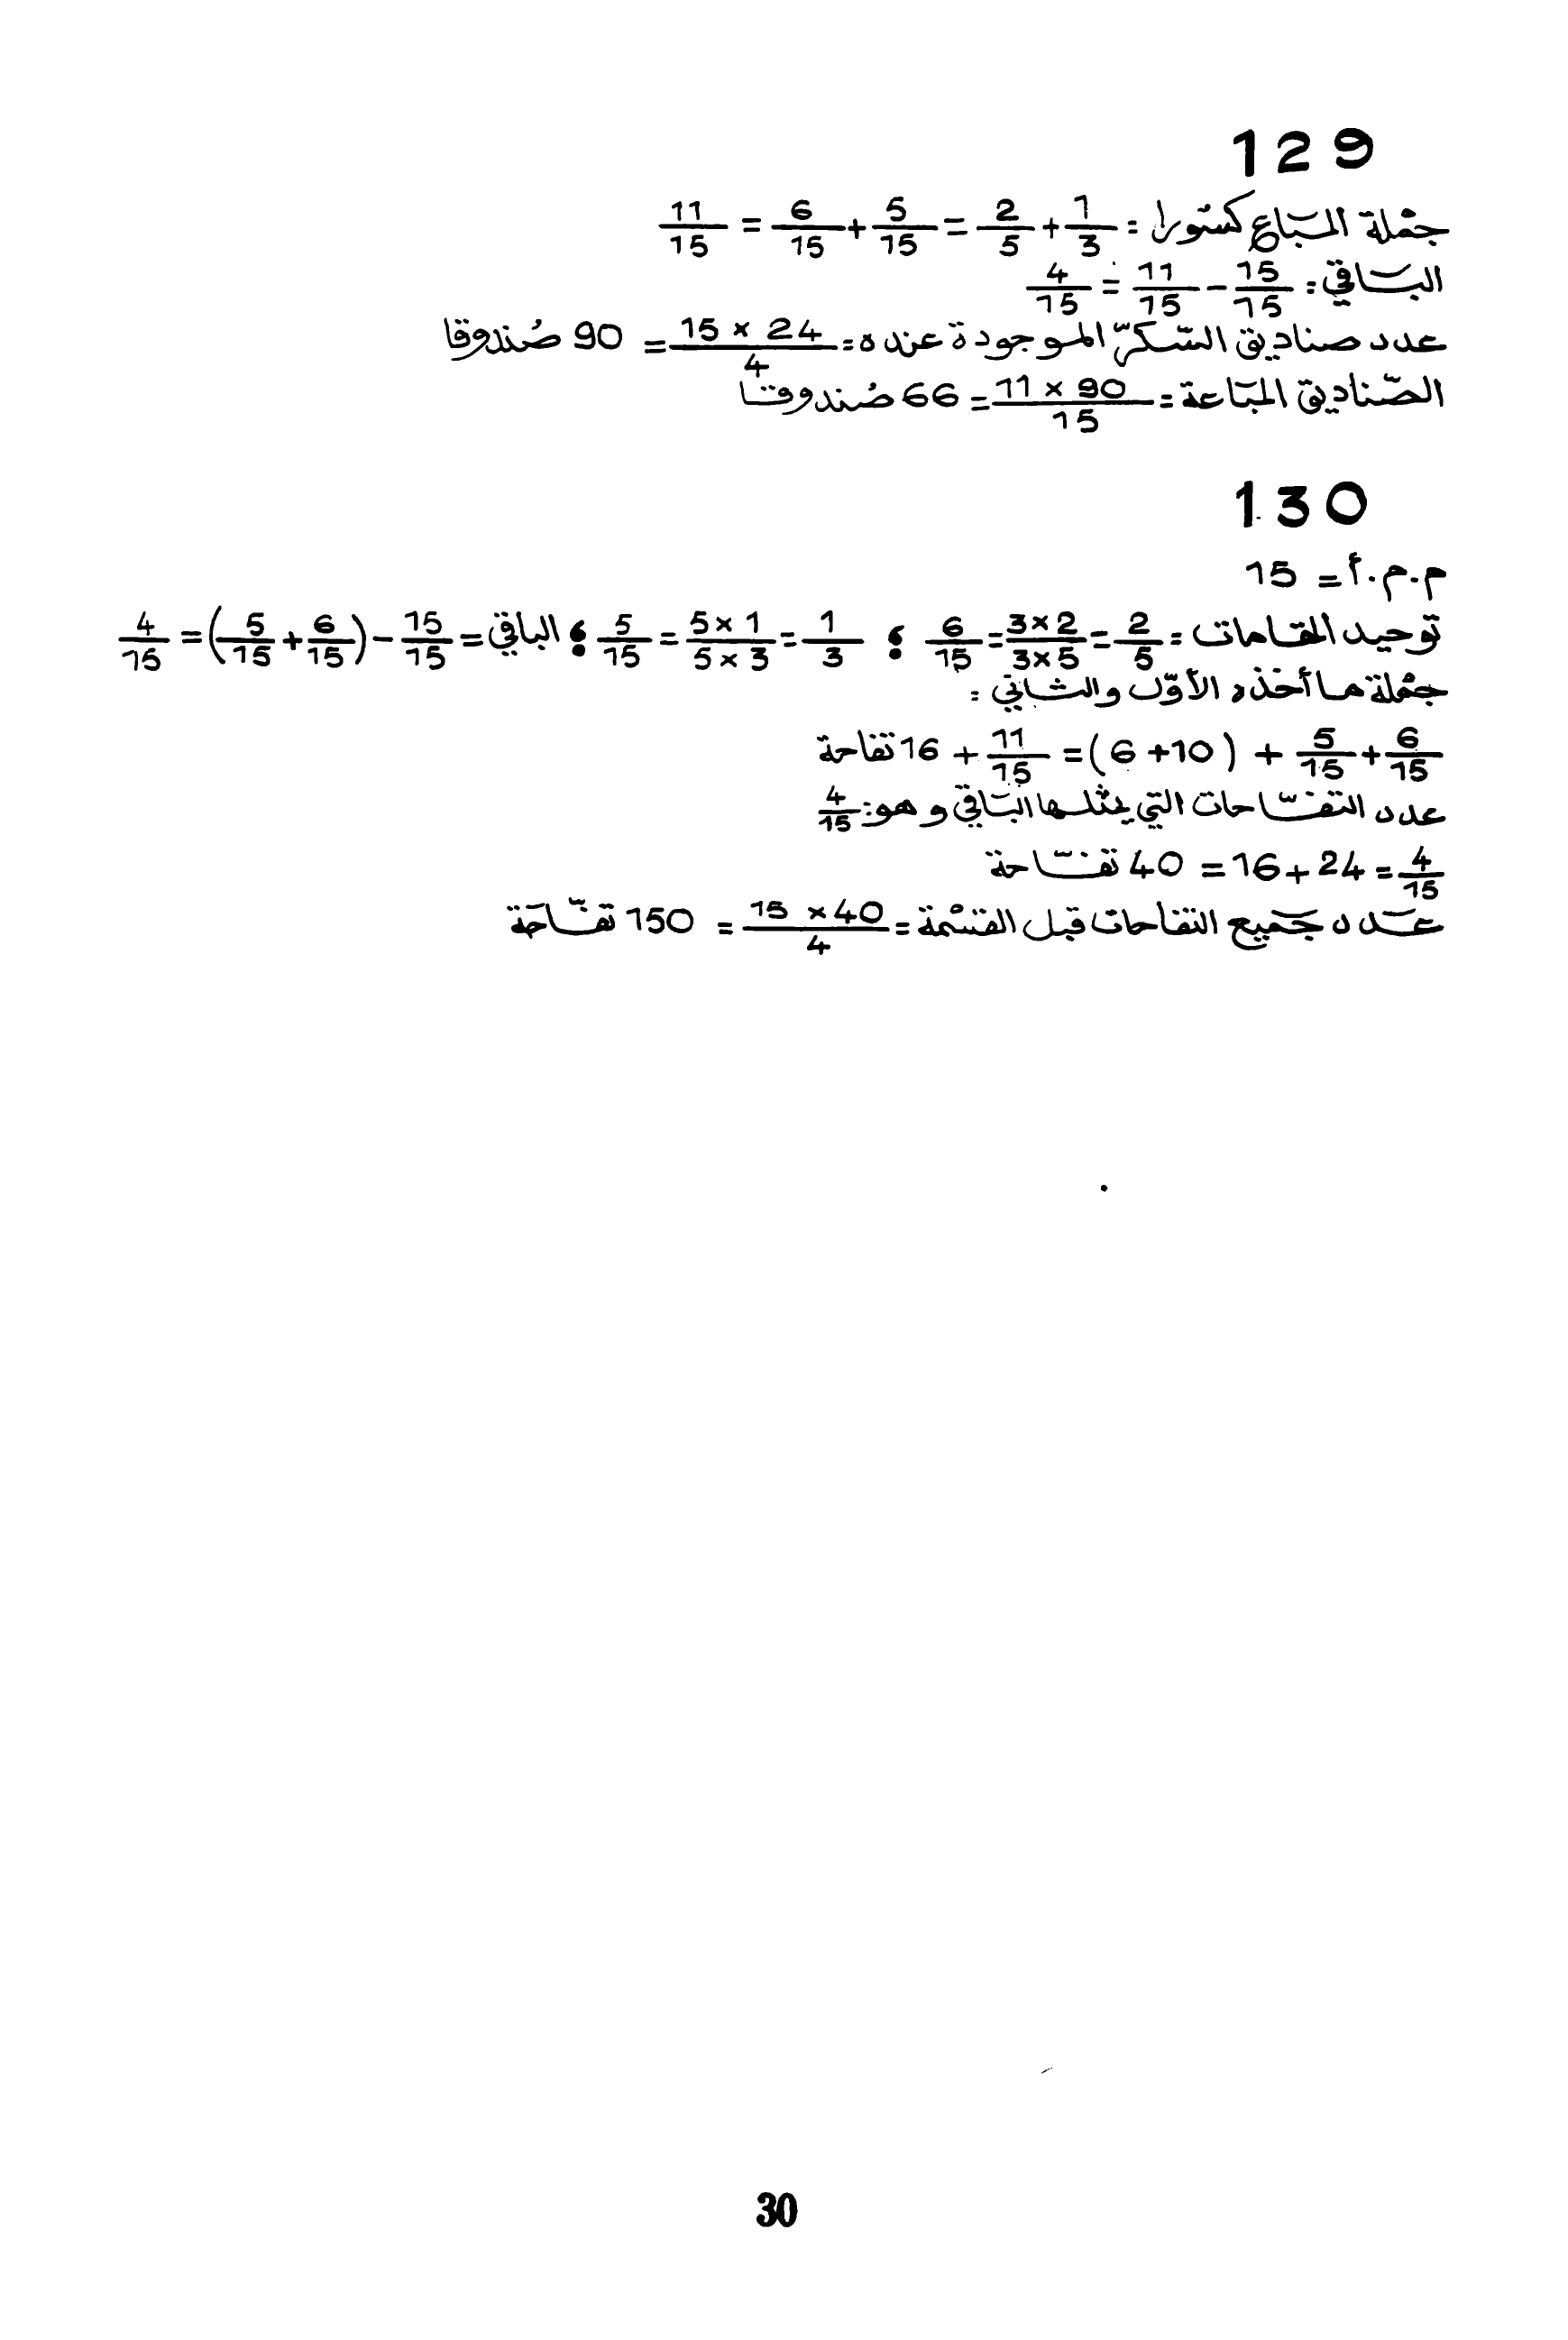 129
جمْلة المبَاع كسُورا : 1/3 + 2/5 = 5/15 + 6/15 = 11/15
البَاقي : 15/15 - 11/15 = 4/15
عدد صناديق السّكرّ الموجودة عنده = 24 × 15 / 4 = 90 صُندوقا
الصّناديق المبَاعة = 90 × 11 / 15 = 66 صُندوقا
130
م.م.أ = 15
توحيد المقامات = 2/5 = 2×3 / 5×3 = 6/15 ؛ 1/3 = 1×5 / 3×5 = 5/15 ؛ الباقي = 15/15 - (6/15 + 5/15) = 4/15
جمْلة ما أخذه الأوّل والثاني :
6/15 + 5/15 + (10+6) = 11/15 + 16 تفاحة
عدد التفّاحات التي يمثلها البَاقي وهو : 4/15
4/15 = 24 + 16 = 40 تفّاحة
عَدد جَميع التفاحات قبل القسْمة = 40 × 15 / 4 = 150 تفّاحَة
30